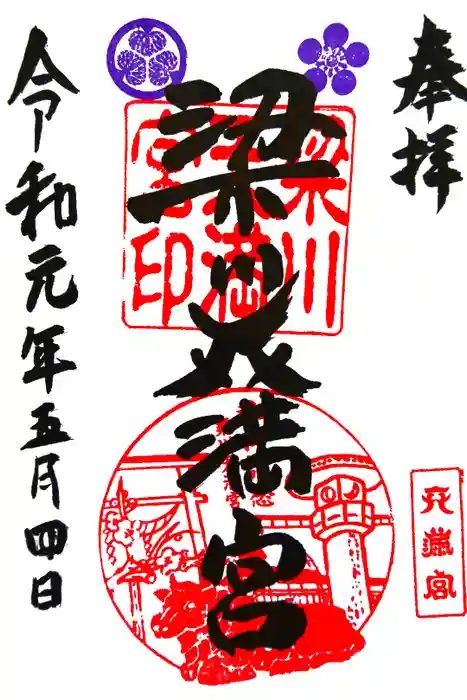 奉拝
梁川天満宮
令和元年五月四日
梁川
天満
宮印
天満宮